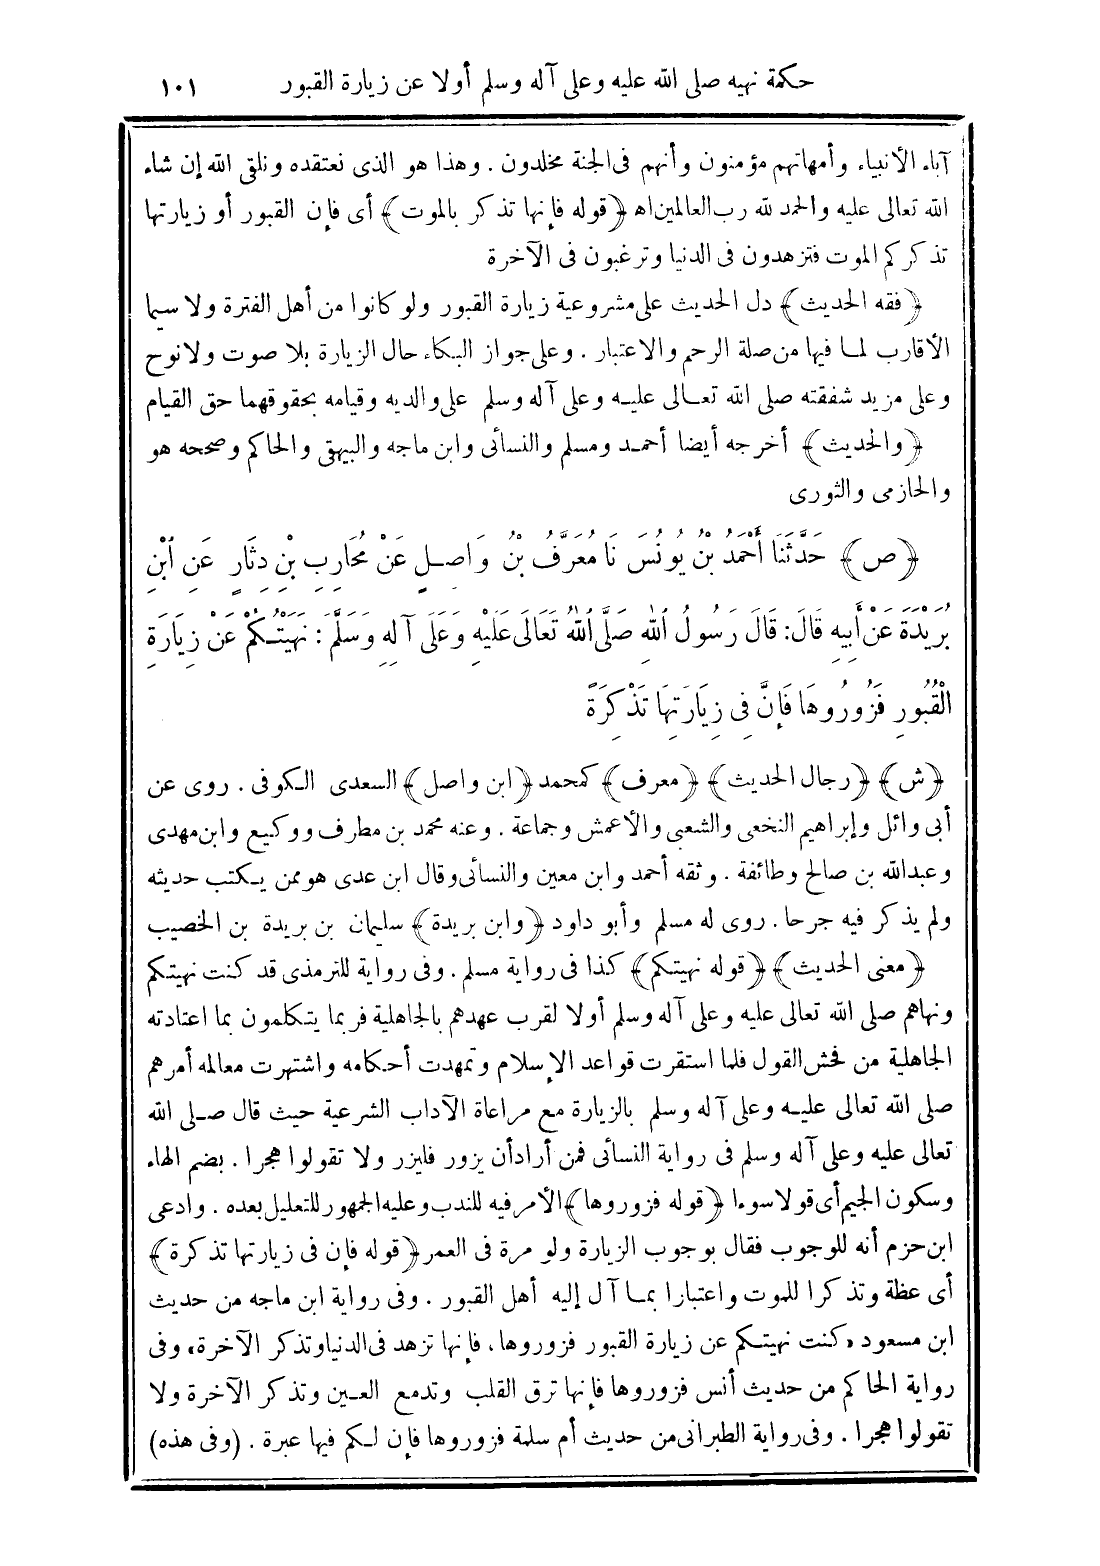 حكمة نهيه صلى الله عليه وعلى آله وسلم أولا عن زيارة القبور ١٠١
آباء الأنبياء وأمهاتهم مؤمنون وأنهم فى الجنة مخلدون . وهذا هو الذى نعتقده ونلقى الله إن شاء
الله تعالى عليه والحمد لله رب العالمين اه ﴿قوله فإنها تذكر بالموت﴾ أى فإن القبور أو زيارتها
تذكركم الموت فتزهدون فى الدنيا وترغبون فى الآخرة
﴿فقه الحديث﴾ دل الحديث على مشروعية زيارة القبور ولو كانوا من أهل الفترة ولا سيما
الأقارب لما فيها من صلة الرحم والاعتبار . وعلى جواز البكاء حال الزيارة بلا صوت ولا نوح
وعلى مزيد شفقته صلى الله تعالى عليه وعلى آله وسلم على والديه وقيامه بحقوقهما حق القيام
﴿والحديث﴾ أخرجه أيضا أحمد ومسلم والنسائى وابن ماجه والبيهقى والحاكم وصححه هو
والحازمى والثورى
﴿ص﴾ حَدَّثَنَا أَحْمَدُ بْنُ يُونُسَ نَا مُعَرَّفُ بْنُ وَاصِلٍ عَنْ مُحَارِبِ بْنِ دِثَارٍ عَنِ ابْنِ
بُرَيْدَةَ عَنْ أَبِيهِ قَالَ: قَالَ رَسُولُ اللهِ صَلَّى اللهُ تَعَالَى عَلَيْهِ وَعَلَى آلِهِ وَسَلَّمَ : نَهَيْتُكُمْ عَنْ زِيَارَةِ
الْقُبُورِ فَزُورُوهَا فَإِنَّ فِى زِيَارَتِهَا تَذْكِرَةً
﴿ش﴾ ﴿رجال الحديث﴾ ﴿معرف﴾ كمحمد ﴿ابن واصل﴾ السعدى الكوفى . روى عن
أبى وائل وإبراهيم النخعى والشعبى والأعمش وجماعة . وعنه محمد بن مطرف ووكيع وابن مهدى
وعبدالله بن صالح وطائفة . وثقه أحمد وابن معين والنسائى وقال ابن عدى هو ممن يكتب حديثه
ولم يذكر فيه جرحا . روى له مسلم وأبو داود ﴿وابن بريدة﴾ سليمان بن بريدة بن الخصيب
﴿معنى الحديث﴾ ﴿قوله نهيتكم﴾ كذا فى رواية مسلم . وفى رواية للترمذى قد كنت نهيتكم
ونهاهم صلى الله تعالى عليه وعلى آله وسلم أولا لقرب عهدهم بالجاهلية فربما يتكلمون بما اعتادته
الجاهلية من فحش القول فلما استقرت قواعد الإسلام وتمهدت أحكامه واشتهرت معالمه أمرهم
صلى الله تعالى عليه وعلى آله وسلم بالزيارة مع مراعاة الآداب الشرعية حيث قال صلى الله
تعالى عليه وعلى آله وسلم فى رواية النسائى فمن أراد أن يزور فليزر ولا تقولوا هجرا . بضم الهاء
وسكون الجيم أى قولا سوءا ﴿قوله فزوروها﴾ الأمر فيه للندب وعليه الجمهور للتعليل بعده . وادعى
ابن حزم أنه للوجوب فقال بوجوب الزيارة ولو مرة فى العمر ﴿قوله فإن فى زيارتها تذكرة﴾
أى عظة وتذكرا للموت واعتبارا بما آل إليه أهل القبور . وفى رواية ابن ماجه من حديث
ابن مسعود «كنت نهيتكم عن زيارة القبور فزوروها، فإنها تزهد فى الدنيا وتذكر الآخرة» وفى
رواية الحاكم من حديث أنس فزوروها فإنها ترق القلب وتدمع العين وتذكر الآخرة ولا
تقولوا هجرا . وفى رواية الطبرانى من حديث أم سلمة فزوروها فإن لكم فيها عبرة . (وفى هذه)